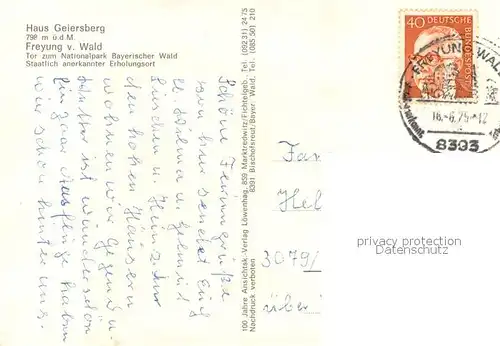 Haus Geiersberg
798 m ü.d.M.
Freyung v. Wald
Tor zum Nationalpark Bayerischer Wald
Staatlich anerkannter Erholungsort
Schöne Feriengrüße
von hier sendet Euch
u. Wilma u. Gernit
u. Heinz. In
den hohen Häusern
wohnen wir. Gegend u.
Wetter ist wunderschön
Ein paar Ausflüge haben
wir schon hinter uns.
100 Jahre Ansichtsk.-Verlag Löwenhag, 859 Marktredwitz/Fichtelgeb. Tel. (09231) 2475
8391 Bischofsreut/Bayer. Wald, Tel. (08550) 210
Nachdruck verboten
40
DEUTSCHE BUNDESPOST
FREYUNG V WALD
16.-6.75-12
8393
Fam
Hel
3079/
über
privacy protection
Datenschutz